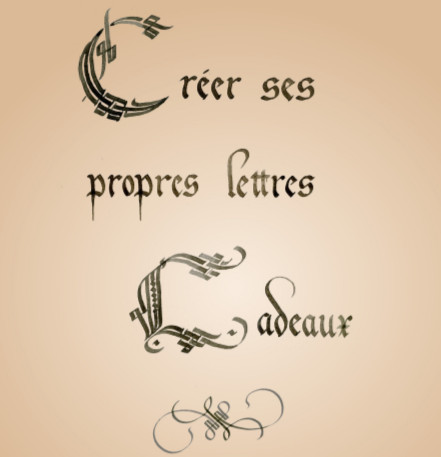 Créer ses
propres lettres
Cadeaux